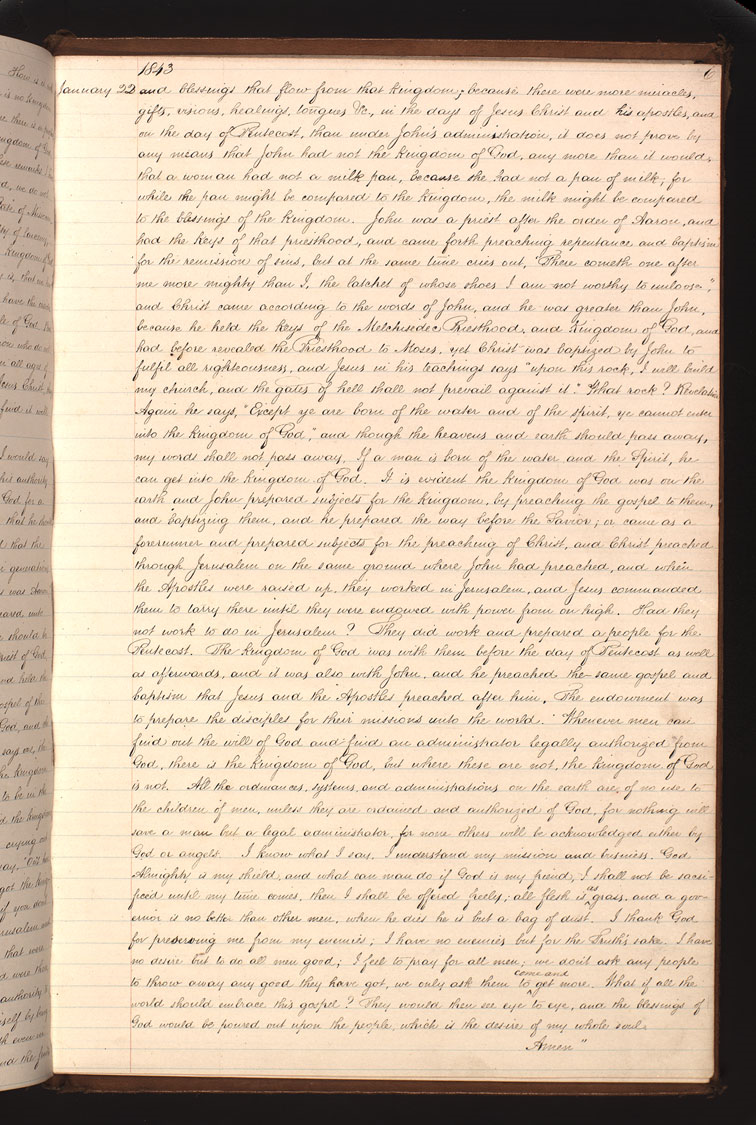 1843
6
January 22 and blessings that flow from that kingdom; because there were more miracles,
gifts, visions, healings, tongues &c., in the days of Jesus Christ and his apostles, and
on the day of Pentecost, than under John's administration, it does not prove by
any means that John had not the kingdom of God, any more than it would,
that a woman had not a milk pan, because she had not a pan of milk; for
while the pan might be compared to the kingdom, the milk might be compared
to the blessings of the kingdom. John was a priest after the order of Aaron, and
had the keys of that priesthood, and came forth preaching repentance and baptism
for the remission of sins, but at the same time cries out, "There cometh one after
me more mighty than I, the latchet of whose shoes I am not worthy to unloose",
and Christ came according to the words of John, and he was greater than John,
because he held the keys of the Melchisedec Priesthood, and kingdom of God, and
had before revealed the Priesthood to Moses, yet Christ was baptized by John to
fulfil all righteousness, and Jesus in his teachings says "upon this rock, I will build
my church, and the gates of hell shall not prevail against it." What rock? Revelation
Again he says, "Except ye are born of the water and of the spirit, ye cannot enter
into the kingdom of God", and though the heavens and earth should pass away,
my words shall not pass away. If a man is born of the water and the Spirit, he
can get into the kingdom of God. It is evident the kingdom of God was on the
earth and John prepared subjects for the kingdom, by preaching the gospel to them,
and baptizing them, and he prepared the way before the Savior; or came as a
forerunner and prepared subjects for the preaching of Christ, and Christ preached
through Jerusalem on the same ground where John had preached, and when
the Apostles were raised up, they worked in Jerusalem, and Jesus commanded
them to tarry there until they were endowed with power from on high. Had they
not work to do in Jerusalem? They did work and prepared a people for the
Pentecost. The kingdom of God was with them before the day of Pentecost as well
as afterwards, and it was also with John, and he preached the same gospel and
baptism that Jesus and the Apostles preached after him. The endowment was
to prepare the disciples for their missions unto the world. Whenever men can
find out the will of God and find an administrator legally authorized from
God, there is the kingdom of God, but where these are not, the kingdom of God
is not. All the ordinances, systems, and administrations on the earth are of no use to
the children of men, unless they are ordained and authorized of God, for nothing will
save a man but a legal administrator, for none others will be acknowledged either by
God or angels. I know what I say, I understand my mission and business. God
Almighty is my shield, and what can man do if God is my friend, I shall not be sacri-
ficed until my time comes, then I shall be offered freely; all flesh is as grass, and a gov-
ernor is no better than other men, when he dies he is but a bag of dust. I thank God
for preserving me from my enemies; I have no enemies but for the Truth's sake. I have
no desire but to do all men good; I feel to pray for all men; we don't ask any people
to throw away any good they have got, we only ask them to come and get more. What if all the
world should embrace this gospel? They would then see eye to eye, and the blessings of
God would be poured out upon the people, which is the desire of my whole soul.
Amen"